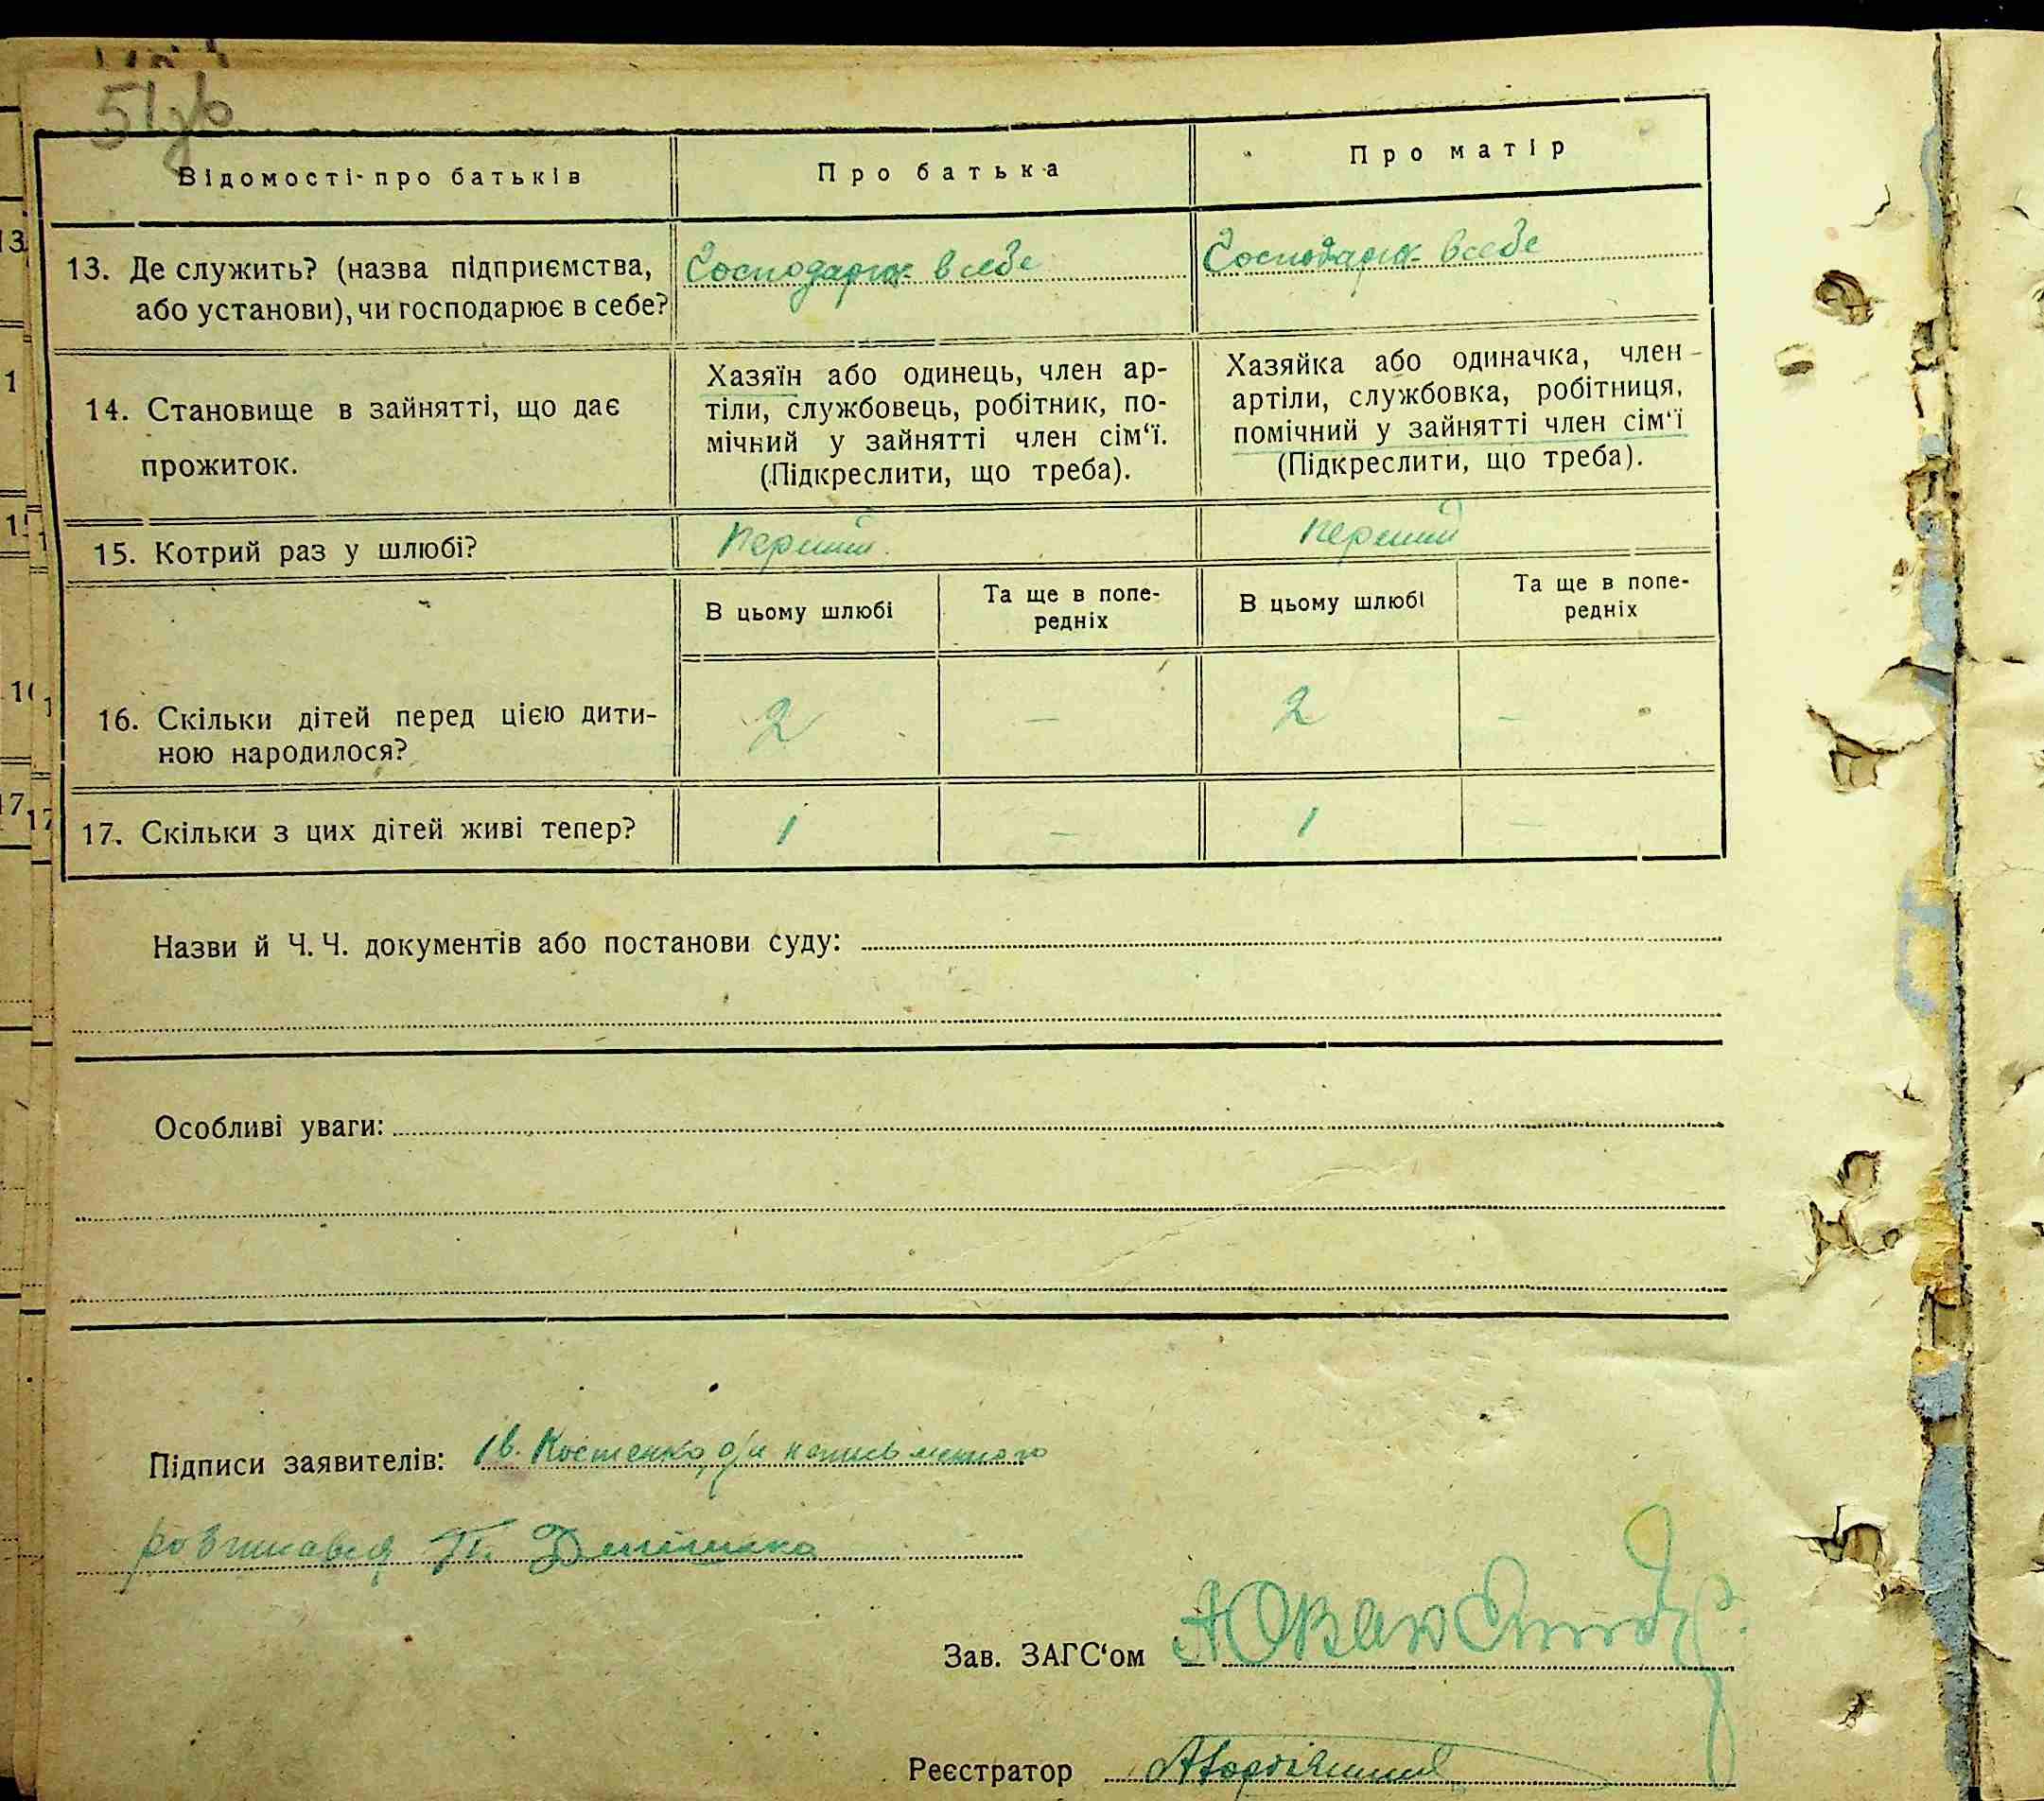 51зв
Відомості про батьків
Про батька
Про матір
13. Де служить? (назва підприємства, або установи), чи господарює в себе?
Господарює в себе
Господарює в себе
14. Становище в зайнятті, що дає прожиток.
Хазяїн або одинець, член ар-
тіли, службовець, робітник, по-
мічний у зайнятті член сім‘ї.
(Підкреслити, що треба).
Хазяйка або одиначка, член
артіли, службовка, робітниця,
помічний у зайнятті член сім‘ї
(Підкреслити, що треба).
15. Котрий раз у шлюбі?
перший
перший
В цьому шлюбі
Та ще в попе-
редніх
В цьому шлюбі
Та ще в попе-
редніх
16. Скільки дітей перед цією дити-
ною народилося?
2 — 2 —
17. Скільки з цих дітей живі тепер?
1 — 1 —
Назви й Ч. Ч. документів або постанови суду:
Особливі уваги:
Підписи заявителів: Ів. Костенко, а/н неписьменного
розписався П.
Зав. ЗАГС‘ом
Реєстратор